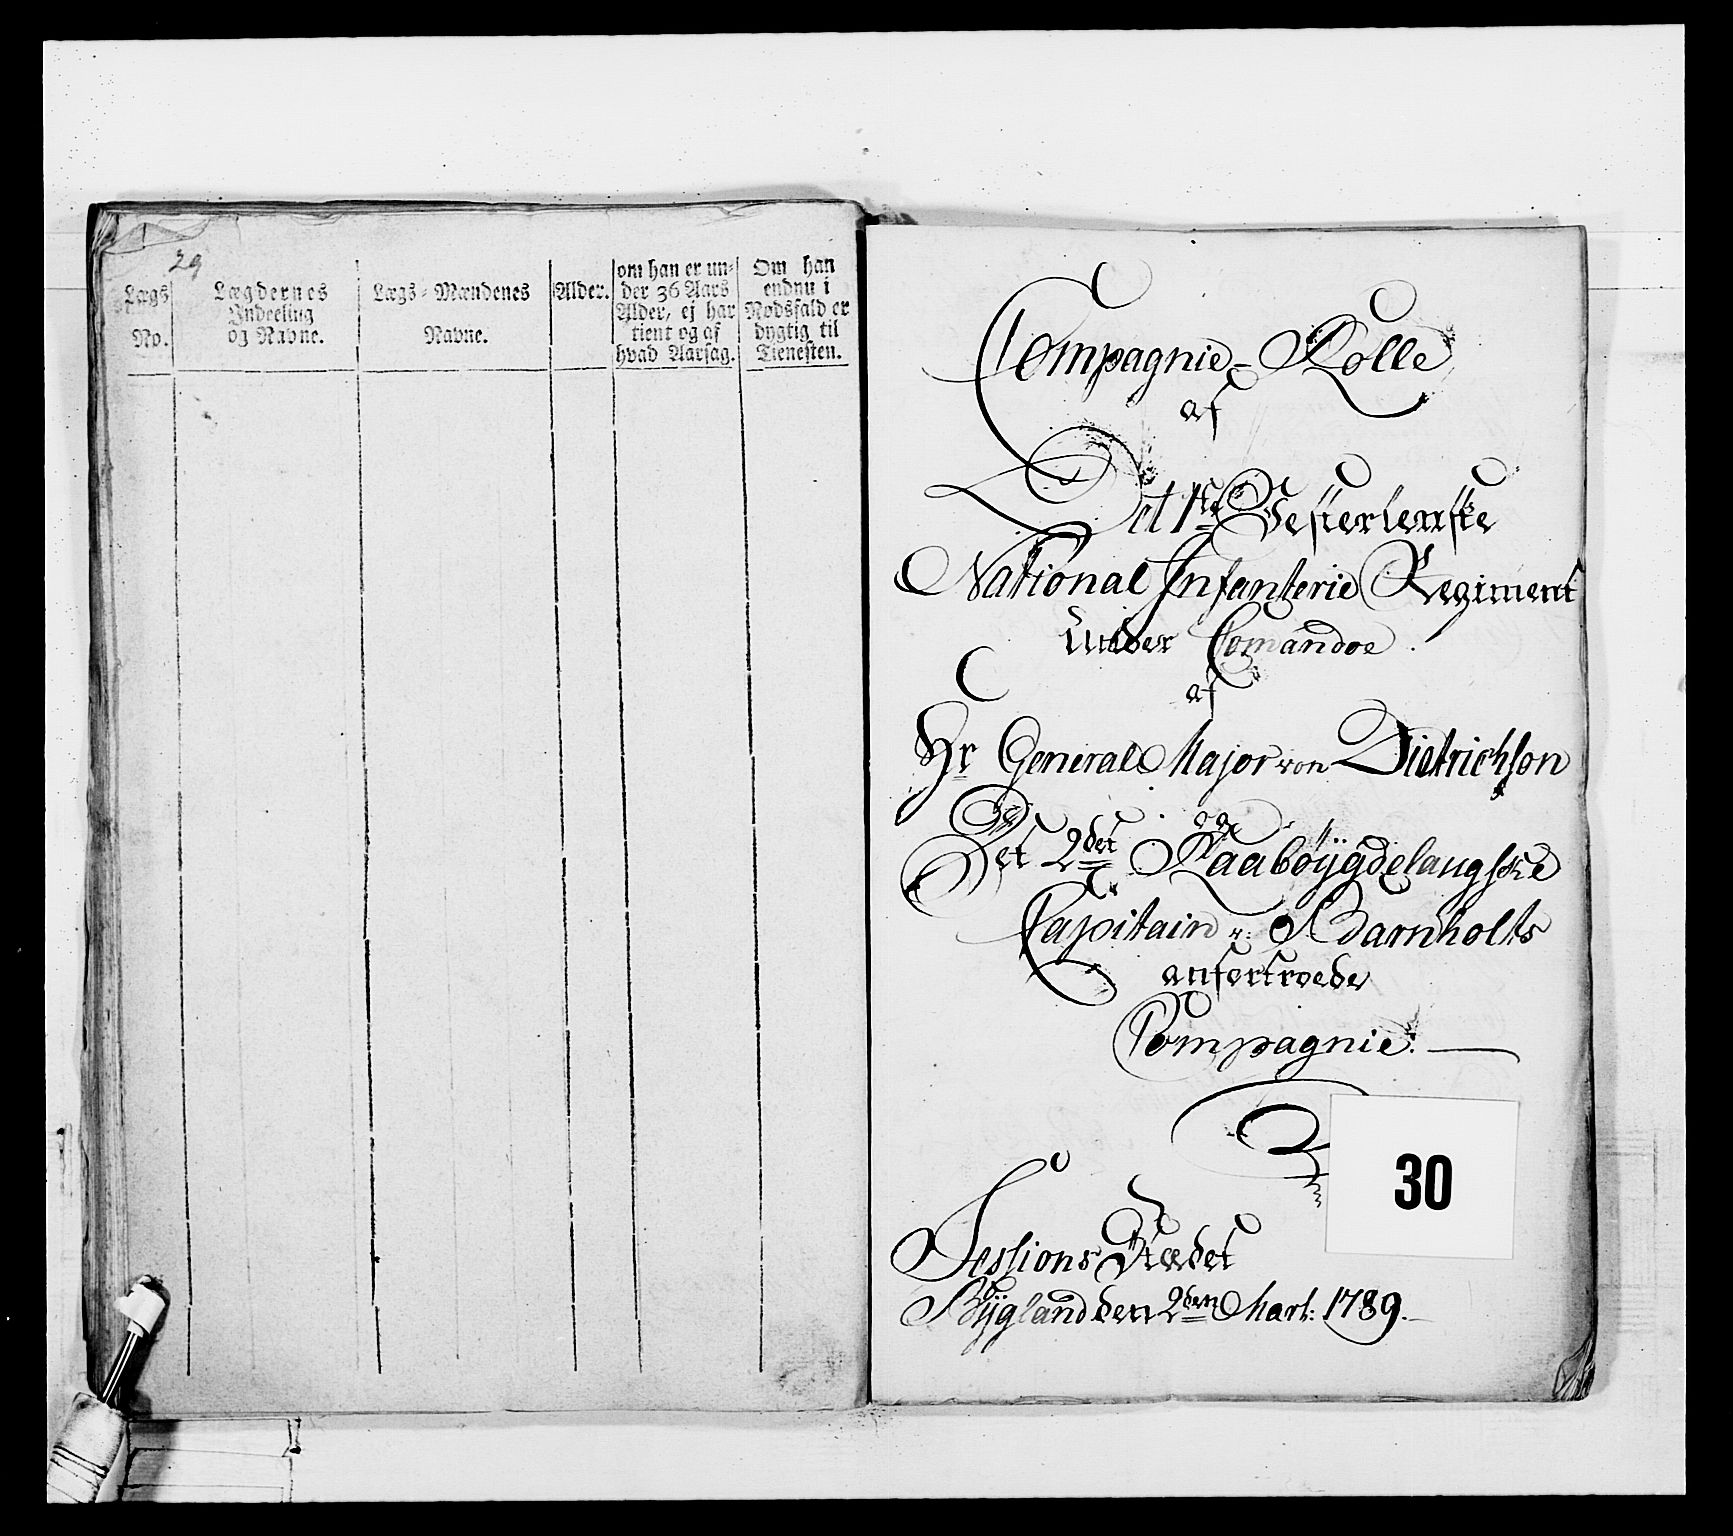 29
Lægs No.
Lægdernes Indeeling og Navne.
Lægs-Mændenes Navne.
Alder.
om han er un-
der 36 Aars
Alder, ej har
tient og af
hvad Aarsag.
Om han
endnu i
Nødsfald er
dygtig til
Tienesten.
Compagnie-Rolle
af
Det 1ste Vesterlenske
National Infanterie Regiment
Under Comandoe
af
Hr General Major von Dietrichson
Det 2det Raabøygdelangske
Capitain v: Barnholts
anfortroede
Compagnie.
30
Sessions Stædet
Bygland den 2den Mart: 1789.